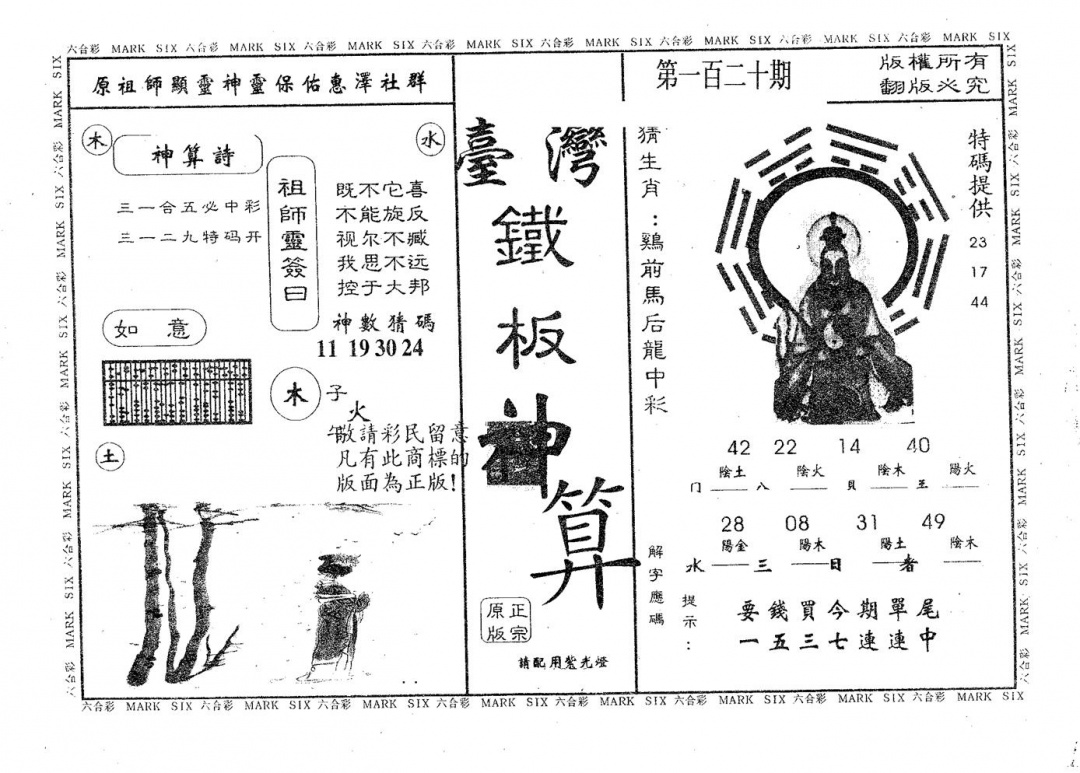 六合彩 MARK SIX 六合彩 MARK SIX 六合彩 MARK SIX 六合彩 MARK SIX 六合彩 MARK SIX 六合彩 MARK SIX 六合彩 MARK SIX 六合彩 MARK SIX
原祖師顯靈神靈保佑惠澤社群
木
水
神算詩
三一合五必中彩
三一二九特码开
祖師靈簽曰
既不它喜
不能旋反
视尔不臧
我思不远
控于大邦
神數猜碼
11 19 30 24
如意
木
子
火
午
敬請彩民留意
凡有此商標的
版面為正版!
土
臺灣
鐵
板
神
算
正宗
原版
請配用紫光燈
第一百二十期
版權所有
翻版必究
猜生肖:鷄前馬后龍中彩
特碼提供
23
17
44
42 22 14 40
陰土 陰火 陰木 陽火
门 八 貝 至
28 08 31 49
陽金 陽木 陽土 陰木
水 三 日 者
解字應碼
提示:
要錢買今期單尾
一五三七連連中
六合彩 MARK SIX 六合彩 MARK SIX 六合彩 MARK SIX 六合彩 MARK SIX 六合彩 MARK SIX 六合彩 MARK SIX 六合彩 MARK SIX 六合彩 MARK SIX